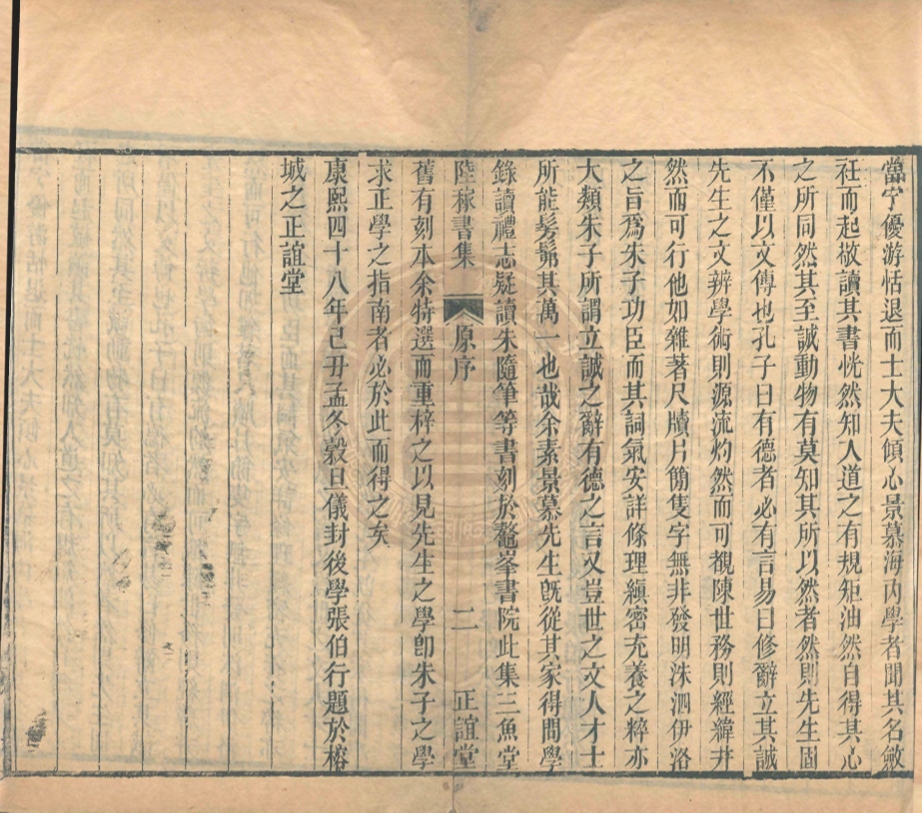 當宁優游恬退而士大夫傾心景慕海內學者聞其名斂
衽而起敬讀其書恍然知人道之有規矩油然自得其心
之所同然其至誠動物有莫知其所以然者然則先生固
不僅以文傳也孔子曰有德者必有言易曰修辭立其誠
先生之文辨學術則源流灼然而可覩陳世務則經緯井
然而可行他如雜著尺牘片簡隻字無非發明洙泗伊洛
之旨爲朱子功臣而其詞氣安詳條理縝密充養之粹亦
大類朱子所謂立誠之辭有德之言又豈世之文人才士
所能髣髴其萬一也哉余素景慕先生旣從其家得問學
錄讀禮志疑讀朱隨筆等書刻於鼇峯書院此集三魚堂
陸稼書集 原序 二 正誼堂
舊有刻本余特選而重梓之以見先生之學卽朱子之學
求正學之指南者必於此而得之矣
康熙四十八年己丑孟冬穀旦儀封後學張伯行題於榕
城之正誼堂